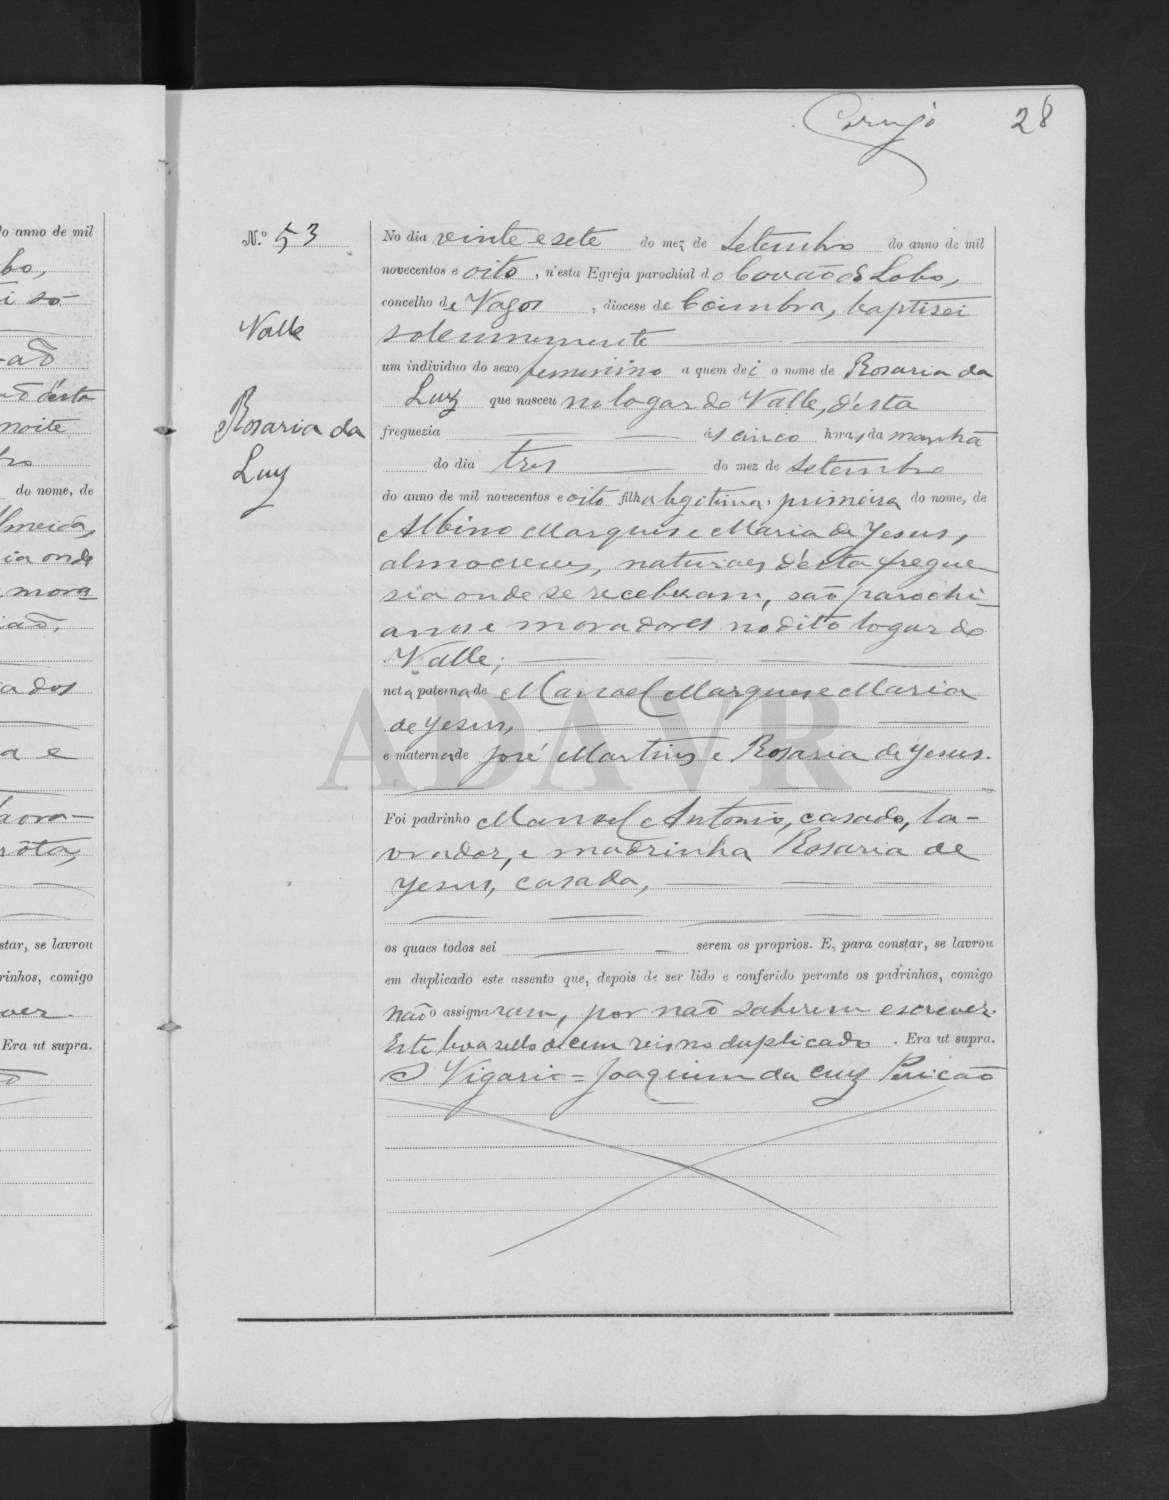 Corujo
28
lo anno de mil
bo,
i so-
-ão
ão d'esta
noite
bro
do nome, de
lmeida,
ia onde
mora
ião,
a dos
a e
lavra-
róta,
star, se lavrou
rinhos, comigo
ver.
Era ut supra.
N.º 53
Valle
Rosaria da
Luz
No dia vinte e sete do mez de Setembro do anno de mil
novecentos e oito, n'esta Egreja parochial do Covão do Lobo,
concelho de Vagos, diocese de Coimbra, baptisei
solemnemente
um individuo do sexo feminino a quem dei o nome de Rosaria da
Luz que nasceu no logar do Valle, d'esta
freguezia ás cinco horas da manhã
do dia tres do mez de Setembro
do anno de mil novecentos e oito filha legitima, primeira do nome, de
Albino Marques e Maria de Jesus,
almocreves, naturaes d'esta fregue-
sia onde se receberam, são parochi-
anos e moradores no dito logar do
Valle;
neta paterna de Manoel Marques e Maria
de Jesus,
e materna de José Martins e Rosaria de Jesus.
Foi padrinho Manoel Antonio, casado, la-
vrador, e madrinha Rosaria de
Jesus, casada,
os quaes todos sei serem os proprios. E, para constar, se lavrou
em duplicado este assento que, depois de ser lido e conferido perante os padrinhos, comigo
não o assignaram, por não saberem escrever.
Este leva sello de cem reis no duplicado. Era ut supra.
O Vigario = Joaquim da Cruz Pericão
ADAVR